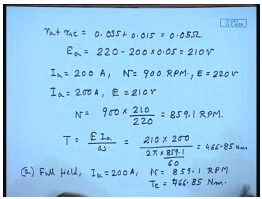 ra + rse = 0.035 + 0.015 = 0.05Ω.
Ea = 220 - 200 × 0.05 = 210V
Ia = 200 A, N = 900 RPM., E = 220V
Ia = 200A, E = 210V
N = 900 × 210 / 220 = 859.1 RPM.
T = E Ia / ω = 210 × 200 / (2π × 859.1 / 60) = 466.85 Nm
(a) Full field, Ia = 200A, N = 859.1 RPM
Te = 466.85 Nm.